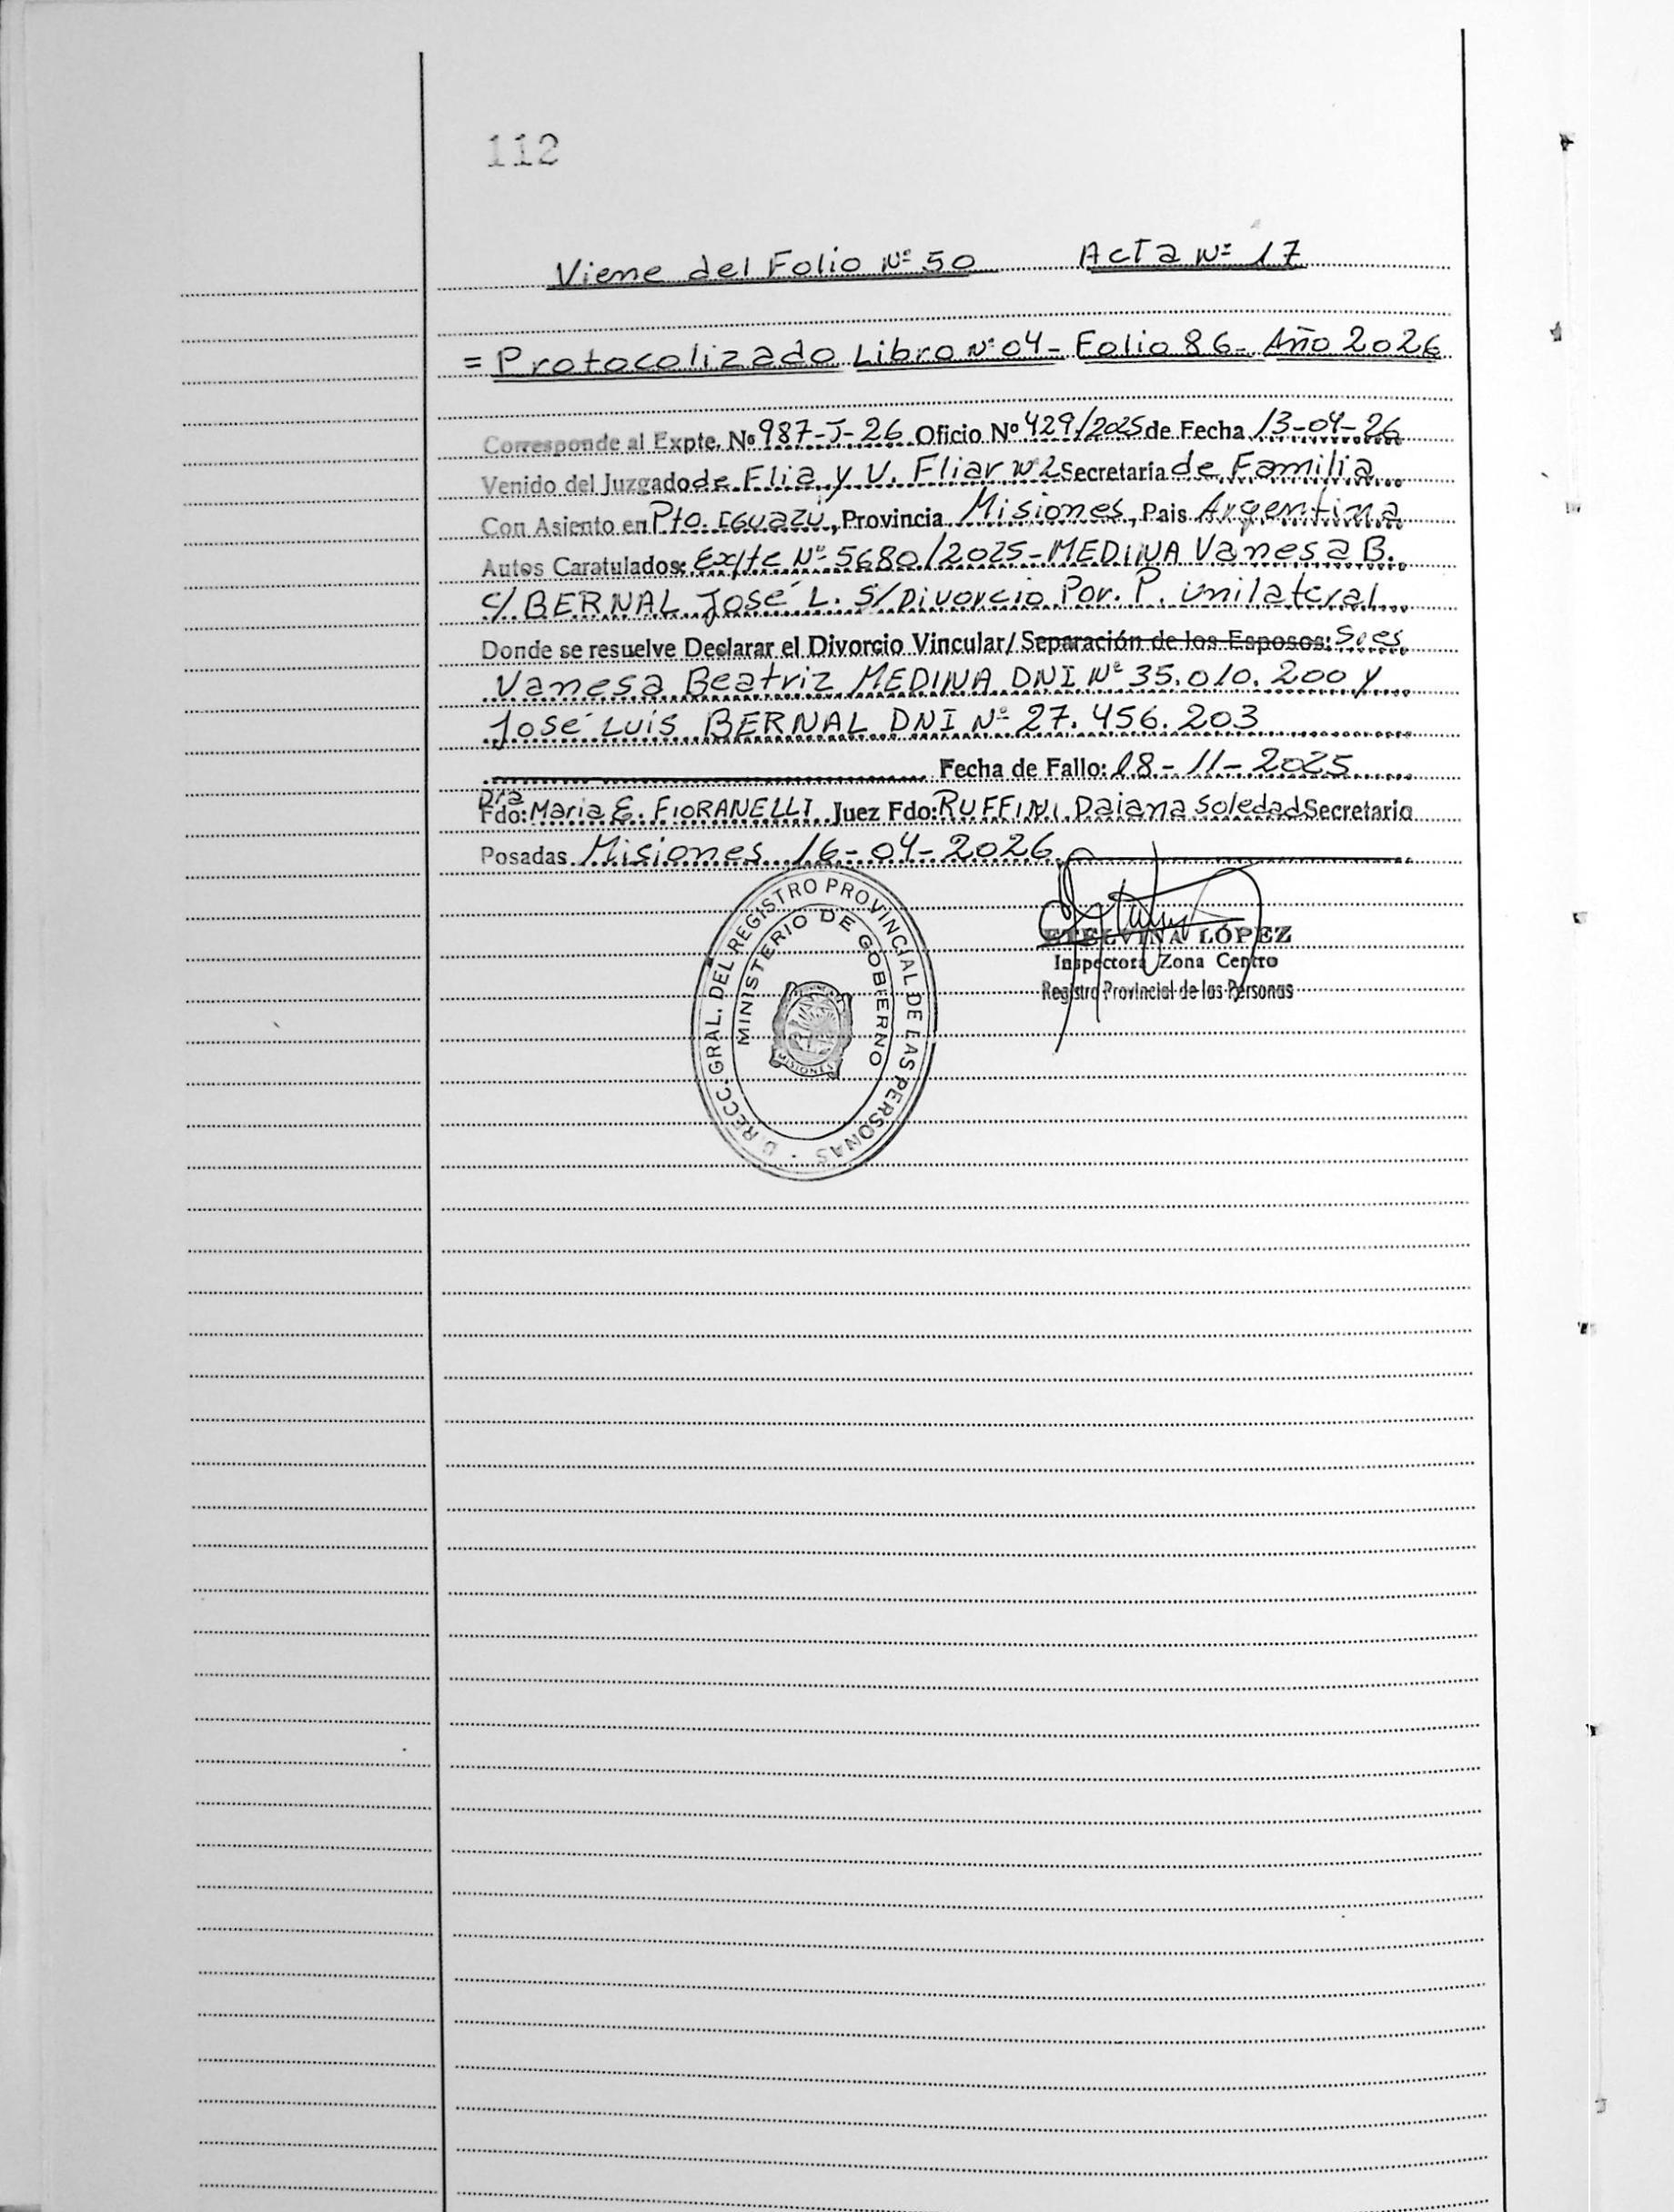 112
Viene del Folio Nº 50 Acta Nº 17
= Protocolizado Libro Nº 04 - Folio 86 - Año 2026
Corresponde al Expte. Nº 987-J-26 Oficio Nº 429/2025 de Fecha 13-04-26
Venido del Juzgado de Flia y V. Fliar Nº 2 Secretaria de Familia
Con Asiento en Pto. Iguazú, Provincia Misiones, Pais Argentina
Autos Caratulados: Exte Nº 5680/2025 - MEDINA Vanesa B.
c/ BERNAL José L. S/ Divorcio Por. P. Unilateral
Donde se resuelve Declarar el Divorcio Vincular/ Separación de los Esposos: Sres
Vanesa Beatriz MEDINA DNI Nº 35.010.200 y
José Luis BERNAL DNI Nº 27.456.203
Fecha de Fallo: 18-11-2025
Dra
Fdo: Maria E. FIORANELLI Juez Fdo: RUFFINI Daiana Soledad Secretario
Posadas Misiones 16-04-2026
DIRECC. GRAL. DEL REGISTRO PROVINCIAL DE LAS PERSONAS
MINISTERIO DE GOBIERNO
MISIONES
ETELVINA LÓPEZ
Inspectora Zona Centro
Registro Provincial de las Personas